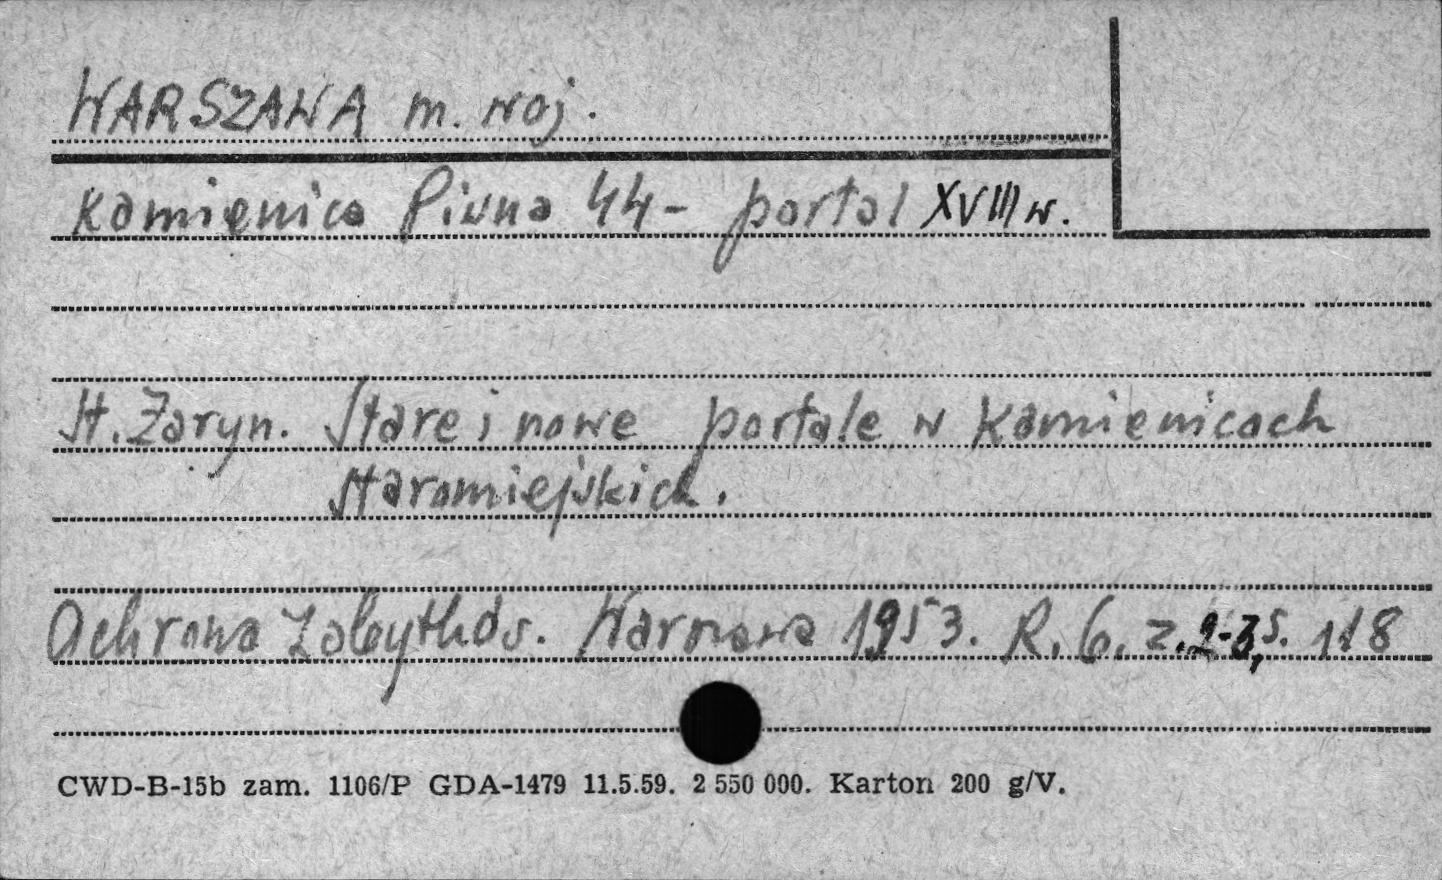 WARSZAWA m. woj.
Kamienica Piwna 44 - portal XVIII w.
St. Żaryn. Stare i nowe portale w kamienicach
staromiejskich.
Ochrona Zabytków. Warszawa 1953. R. 6. z. 2-3, s. 118
CWD-B-15b zam. 1106/P GDA-1479 11.5.59. 2 550 000. Karton 200 g/V.